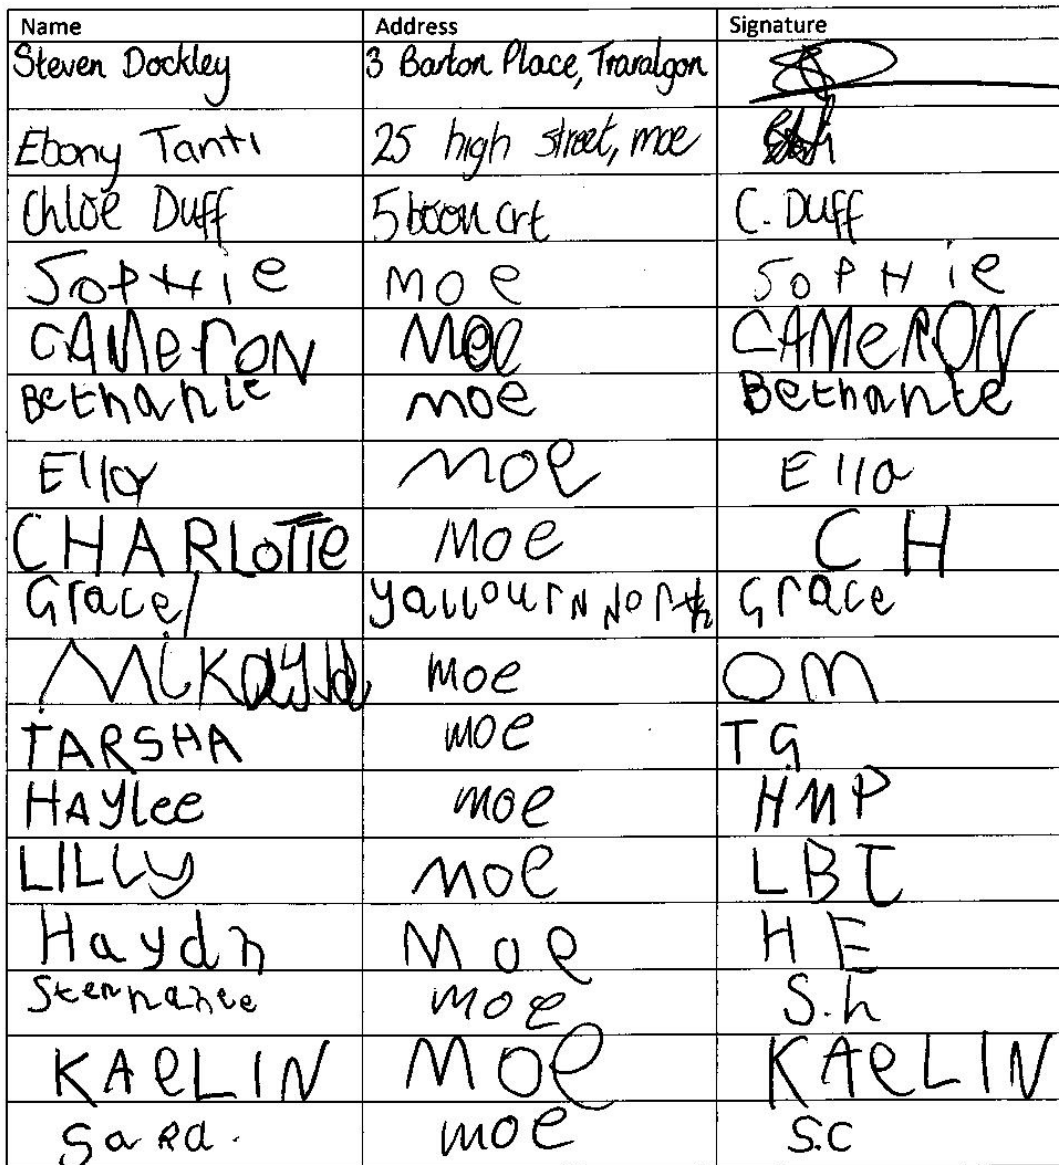 Name Address Signature
Steven Dockley 3 Barton Place, Traralgon
Ebony Tanti 25 high street, moe
Chloe Duff 5 boon crt C. Duff
SOPHie MOe SOPHie
CAMeRON Moe CAMeRON
Bethanie moe Bethanie
Ella MOe Ella
CHARLOTTe Moe CH
Grace yallourN North Grace
Mckayla Moe OM
TARSHA moe TG
HAYlee moe HMP
LILLY MOe LBT
Haydn Moe HE
moe S.h
KAeLIN MOe KAeLIN
SaRa. moe S.C